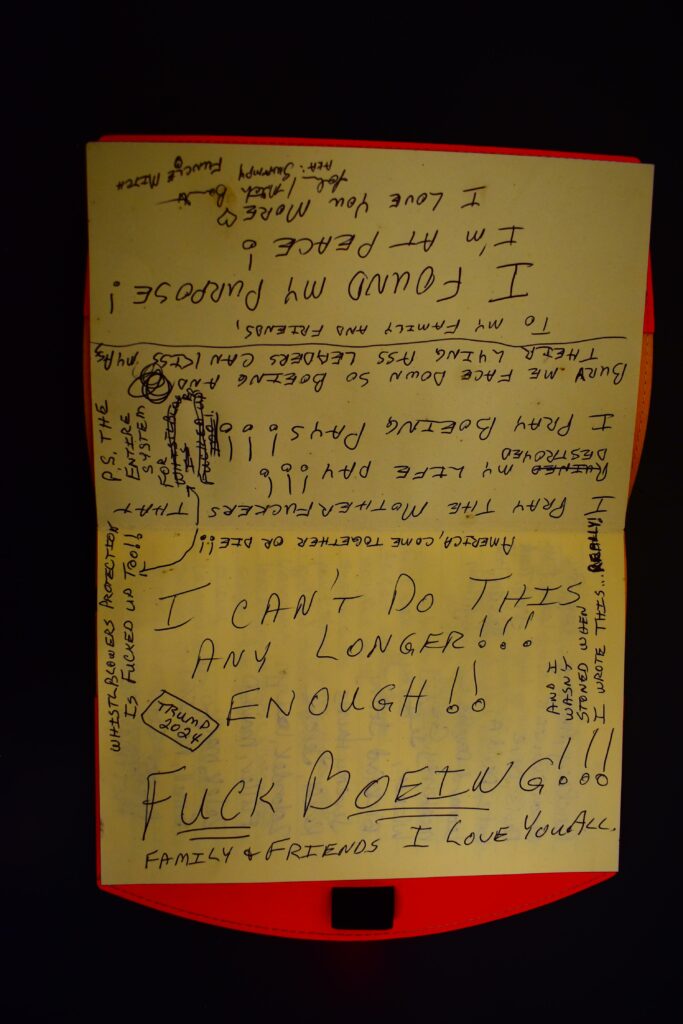 I CAN'T DO THIS
ANY LONGER!!!
ENOUGH!!
TRUMP
2024
FUCK BOEING!!!
FAMILY & FRIENDS I LOVE YOU ALL.
AND I
WASN'T
STONED WHEN
I WROTE THIS... REALLY!
WHISTLBLOWERS PROTECTION
IS FUCKED UP TOO!!
P.S. THE
ENTIRE
SYSTEM
FOR
AMERICA, COME TOGETHER OR DIE!!!
I PRAY THE MOTHERFUCKERS THAT
RUINED
DESTROYED MY LIFE PAY!!!
I PRAY BOEING PAYS!!!
BURY ME FACE DOWN SO BOEING AND
THEIR LYING ASS LEADERS CAN KISS MY ASS
TO MY FAMILY AND FRIENDS,
I FOUND MY PURPOSE!
I'M AT PEACE!
I LOVE YOU MORE ♡
AKA: SWAMPY
FUNCLE MITCH